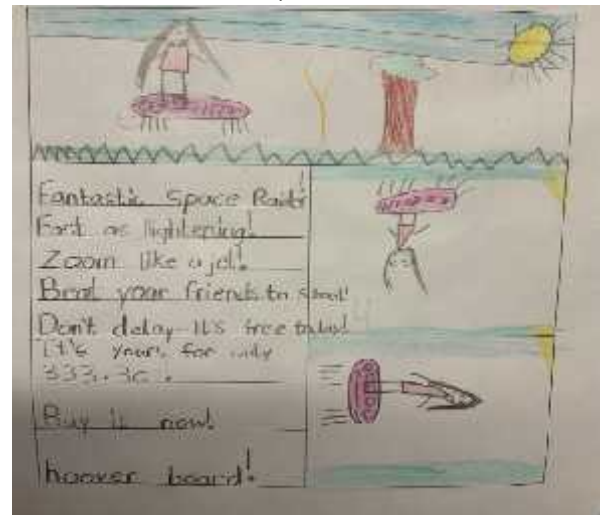 Fantastic Space
Fast as lightening!
Zoom like a jet!
Beat your friends to school!
Don't delay it's free today!
It's yours for only
333.30.
Buy it now!
hoover board!